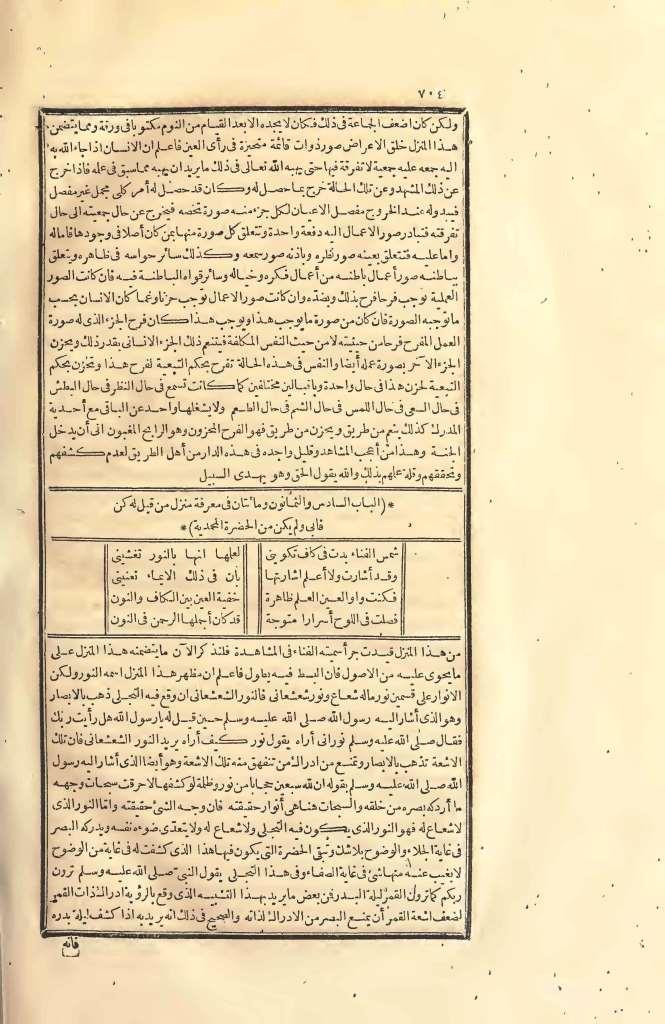 ٧٠٤
ولكن كان اضعف الجماعة فى ذلك فكان لا يجده الا بعد القيام من النوم مكتوبا فى ورقة ومما يتضمن
هذا المنزل خلق الاعراض صور ذوات قائمة متحيزة فى رأى العين فاعلم ان الانسان اذا جاء الله به
اليه جمعه عليه جمعية لا تفرقة فيها حتى يهبه الله تعالى فى ذلك ما يريد ان يهبه مما سبق فى علمه فاذا خرج
عن ذلك المشهد وعن تلك الحالة خرج بما حصل له وكان قد حصل له أمر كلى مجمل غير مفصل
فيبدو له عند الخروج مفصل الاعيان لكل جزء منه صورة تخصه فيخرج عن حال جمعيته الى حال
تفرقته فتبادر صور الاعمال اليه دفعة واحدة وتتعلق كل صورة منها بمن كان أصلا فى وجودها فاما له
واما عليه فتتعلق بعينه صور نظره وباذنه صور سمعه وكذلك سائر حواسه فى ظاهره ويتعلق
بباطنه صور أعمال باطنه من أعمال فكره وخياله وسائر قواه الباطنة فيه فان كانت الصور
العملية توجب فرحا فرح بذلك وبضده وان كانت صور الاعمال توجب حزنا وغما كان الانسان بحسب
ما توجبه الصورة فان كان من صورة ما يوجب هذا ويوجب هذا كان فرح الجزء الذى له صورة
العمل المفرح فرحا من حيثيته لا من حيث النفس المكلفة فيتنعم ذلك الجزء الانسانى بقدر ذلك ويحزن
الجزء الآخر بصورة عمله أيضا والنفس فى هذه الحالة تفرح بحكم التبعية لفرح هذا وتحزن بحكم
التبعية لحزن هذا فى حال واحدة وباقبالين مختلفين كما كانت تسمع فى حال النظر فى حال البطش
فى حال السعى فى حال اللمس فى حال الشم فى حال الطعم ولا يشغلها واحد عن الباقى مع أحدية
المدرك كذلك ينعم من طريق ويحزن من طريق فهو الفرح المحزون وهو الرابح المغبون الى أن يدخل
الجنة وهذا من أعجب المشاهد وقليل واجده فى هذه الدار من أهل الطريق لعدم كشفهم
وتحققهم وقلة علمهم بذلك والله يقول الحق وهو يهدى السبيل
*(الباب السادس والثمانون ومائتان فى معرفة منزل من قيل له كن
فابى ولم يكن من الحضرة المحمدية)*
شمس الفناء بدت فى كاف تكوينى لعلها انها بالنور تغشينى
وقد أشارت ولا أعلم اشارتها بان فى ذلك الايماء تعنينى
فكنت واو العين العلم ظاهرة خفية العين بين الكاف والنون
فصلت فى اللوح أسرارا متوجة قد كان أجملها الرحمن فى النون
من هذا المنزل قيدت جزأ سميته الفناء فى المشاهدة فلنذكر الآن ما يتضمنه هذا المنزل على
ما يحوى عليه من الاصول فان البسط فيه يطول فاعلم ان مظهر هذا المنزل اسمه النور ولكن
الانوار على قسمين نور ماله شعاع ونور شعشعانى فالنور الشعشعانى ان وقع فيه التجلى ذهب بالابصار
وهو الذى أشار اليه رسول الله صلى الله عليه وسلم حين قيل له يا رسول الله هل رأيت ربك
فقال صلى الله عليه وسلم نورانى أراه يقول نور كيف أراه يريد النور الشعشعانى فان تلك
الاشعة تذهب بالابصار وتمنع من ادراك من تنفهق منه تلك الاشعة وهو أيضا الذى أشار اليه رسول
الله صلى الله عليه وسلم بقوله ان لله سبعين حجابا من نور وظلمة لو كشفها لاحرقت سبحات وجهه
ما أدركه بصره من خلقه والسبحات هنا هى أنوار حقيقته فان وجه الشئ حقيقته واما النور الذى
لا شعاع له فهو النور الذى يكون فيه التجلى ولا شعاع له ولا يتعدى ضوءه نفسه ويدركه البصر
فى غاية الجلاء والوضوح بلا شك وتبقى الحضرة التى يكون فيها هذا الذى كشفت له فى غاية من الوضوح
لا يغيب عنه منها شئ فى غاية الصفاء وفى هذا التجلى يقول النبى صلى الله عليه وسلم ترون
ربكم كما ترون القمر ليلة البدر فمن بعض ما يريد بهذا التشبيه الذى وقع بالرؤية ادراك ذات القمر
لضعف اشعة القمر أن يمنع البصر من الادراك لذاته والصحيح فى ذلك انه يريد به اذا كشف ليلة بدره
فانه